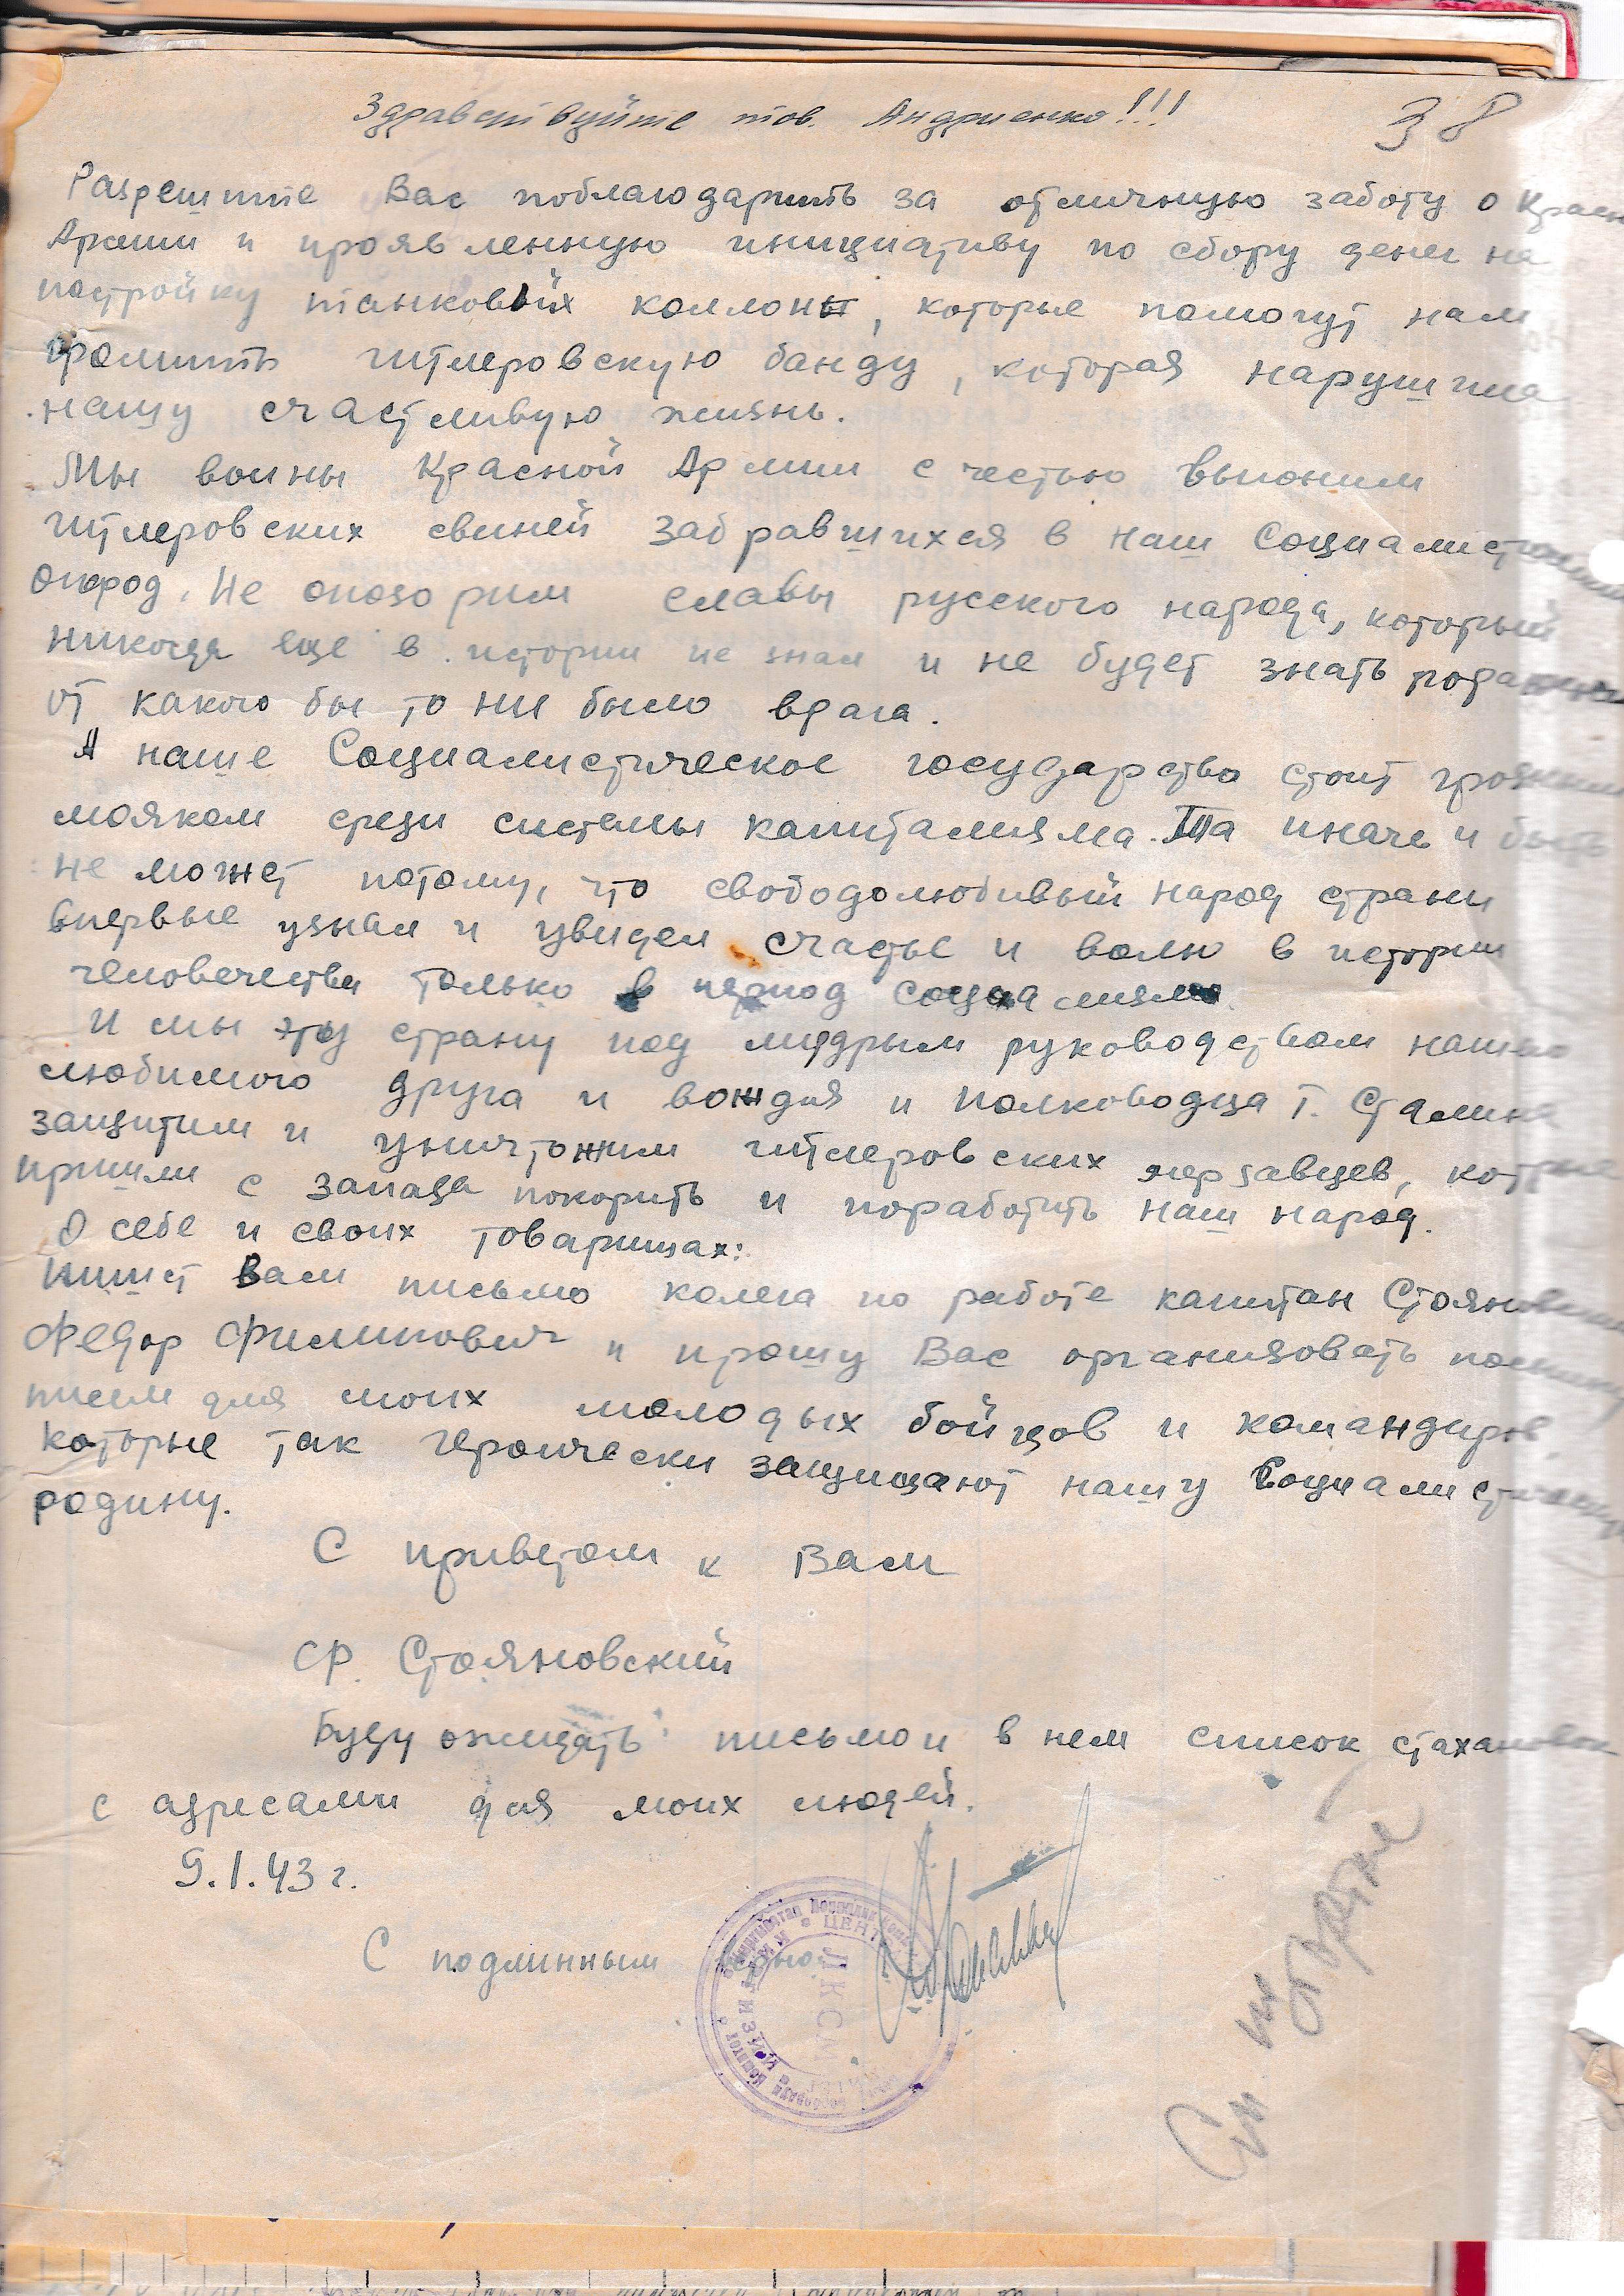 Здравствуйте тов. Андриенко!!!
38
Разрешите Вас поблагодарить за отличную заботу о Красн
Армии и проявленную инициативу по сбору денег на
постройку танковых коллоны, которые помогут нам
громить гитлеровскую банду, которая нарушила
нашу счастливую жизнь.
Мы воины Красной Армии с честью выгоним
гитлеровских свиней забравшихся в наш Социалистический
огород. Не опозорим славы русского народа, который
никогда еще в истории не знал и не будет знать поражения
от какого бы то ни было врага.
А наше Социалистическое государство стоит грозным
мояком среди системы капитализма. Та иначе и быть
не может потому, что свободолюбивый народ страны
впервые узнал и увидел счастье и волю в истории
человечества только в период социализма.
И мы эту страну под мудрым руководством нашего
любимого друга и вождя и полководца т. Сталина
защитим и уничтожим гитлеровских мерзавцев, которые
пришли с запада покорить и поработить наш народ.
О себе и своих товарищах:
Пишет Вам письмо колега по работе капитан Стояновский
Федор Филипович и прошу Вас организовать посылку
писем для моих молодых бойцов и командиров,
которые так героически защищают нашу Социалистическую
родину.
С приветом к Вам
Ф. Стояновский
Буду ожидать письмо и в нем список стахановок
с адресами для моих людей.
9.1.43 г.
С подлинным
ЦЕНТ
ЛКСМ
См на обороте